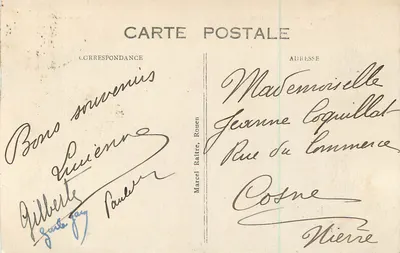 CARTE POSTALE
CORRESPONDANCE
ADRESSE
Bons souvenirs
Lucienne
Gilberte
Marcel Raître, Rouen
Mademoiselle
Jeanne Coquillat
Rue du Commerce
Cosne
Nièvre